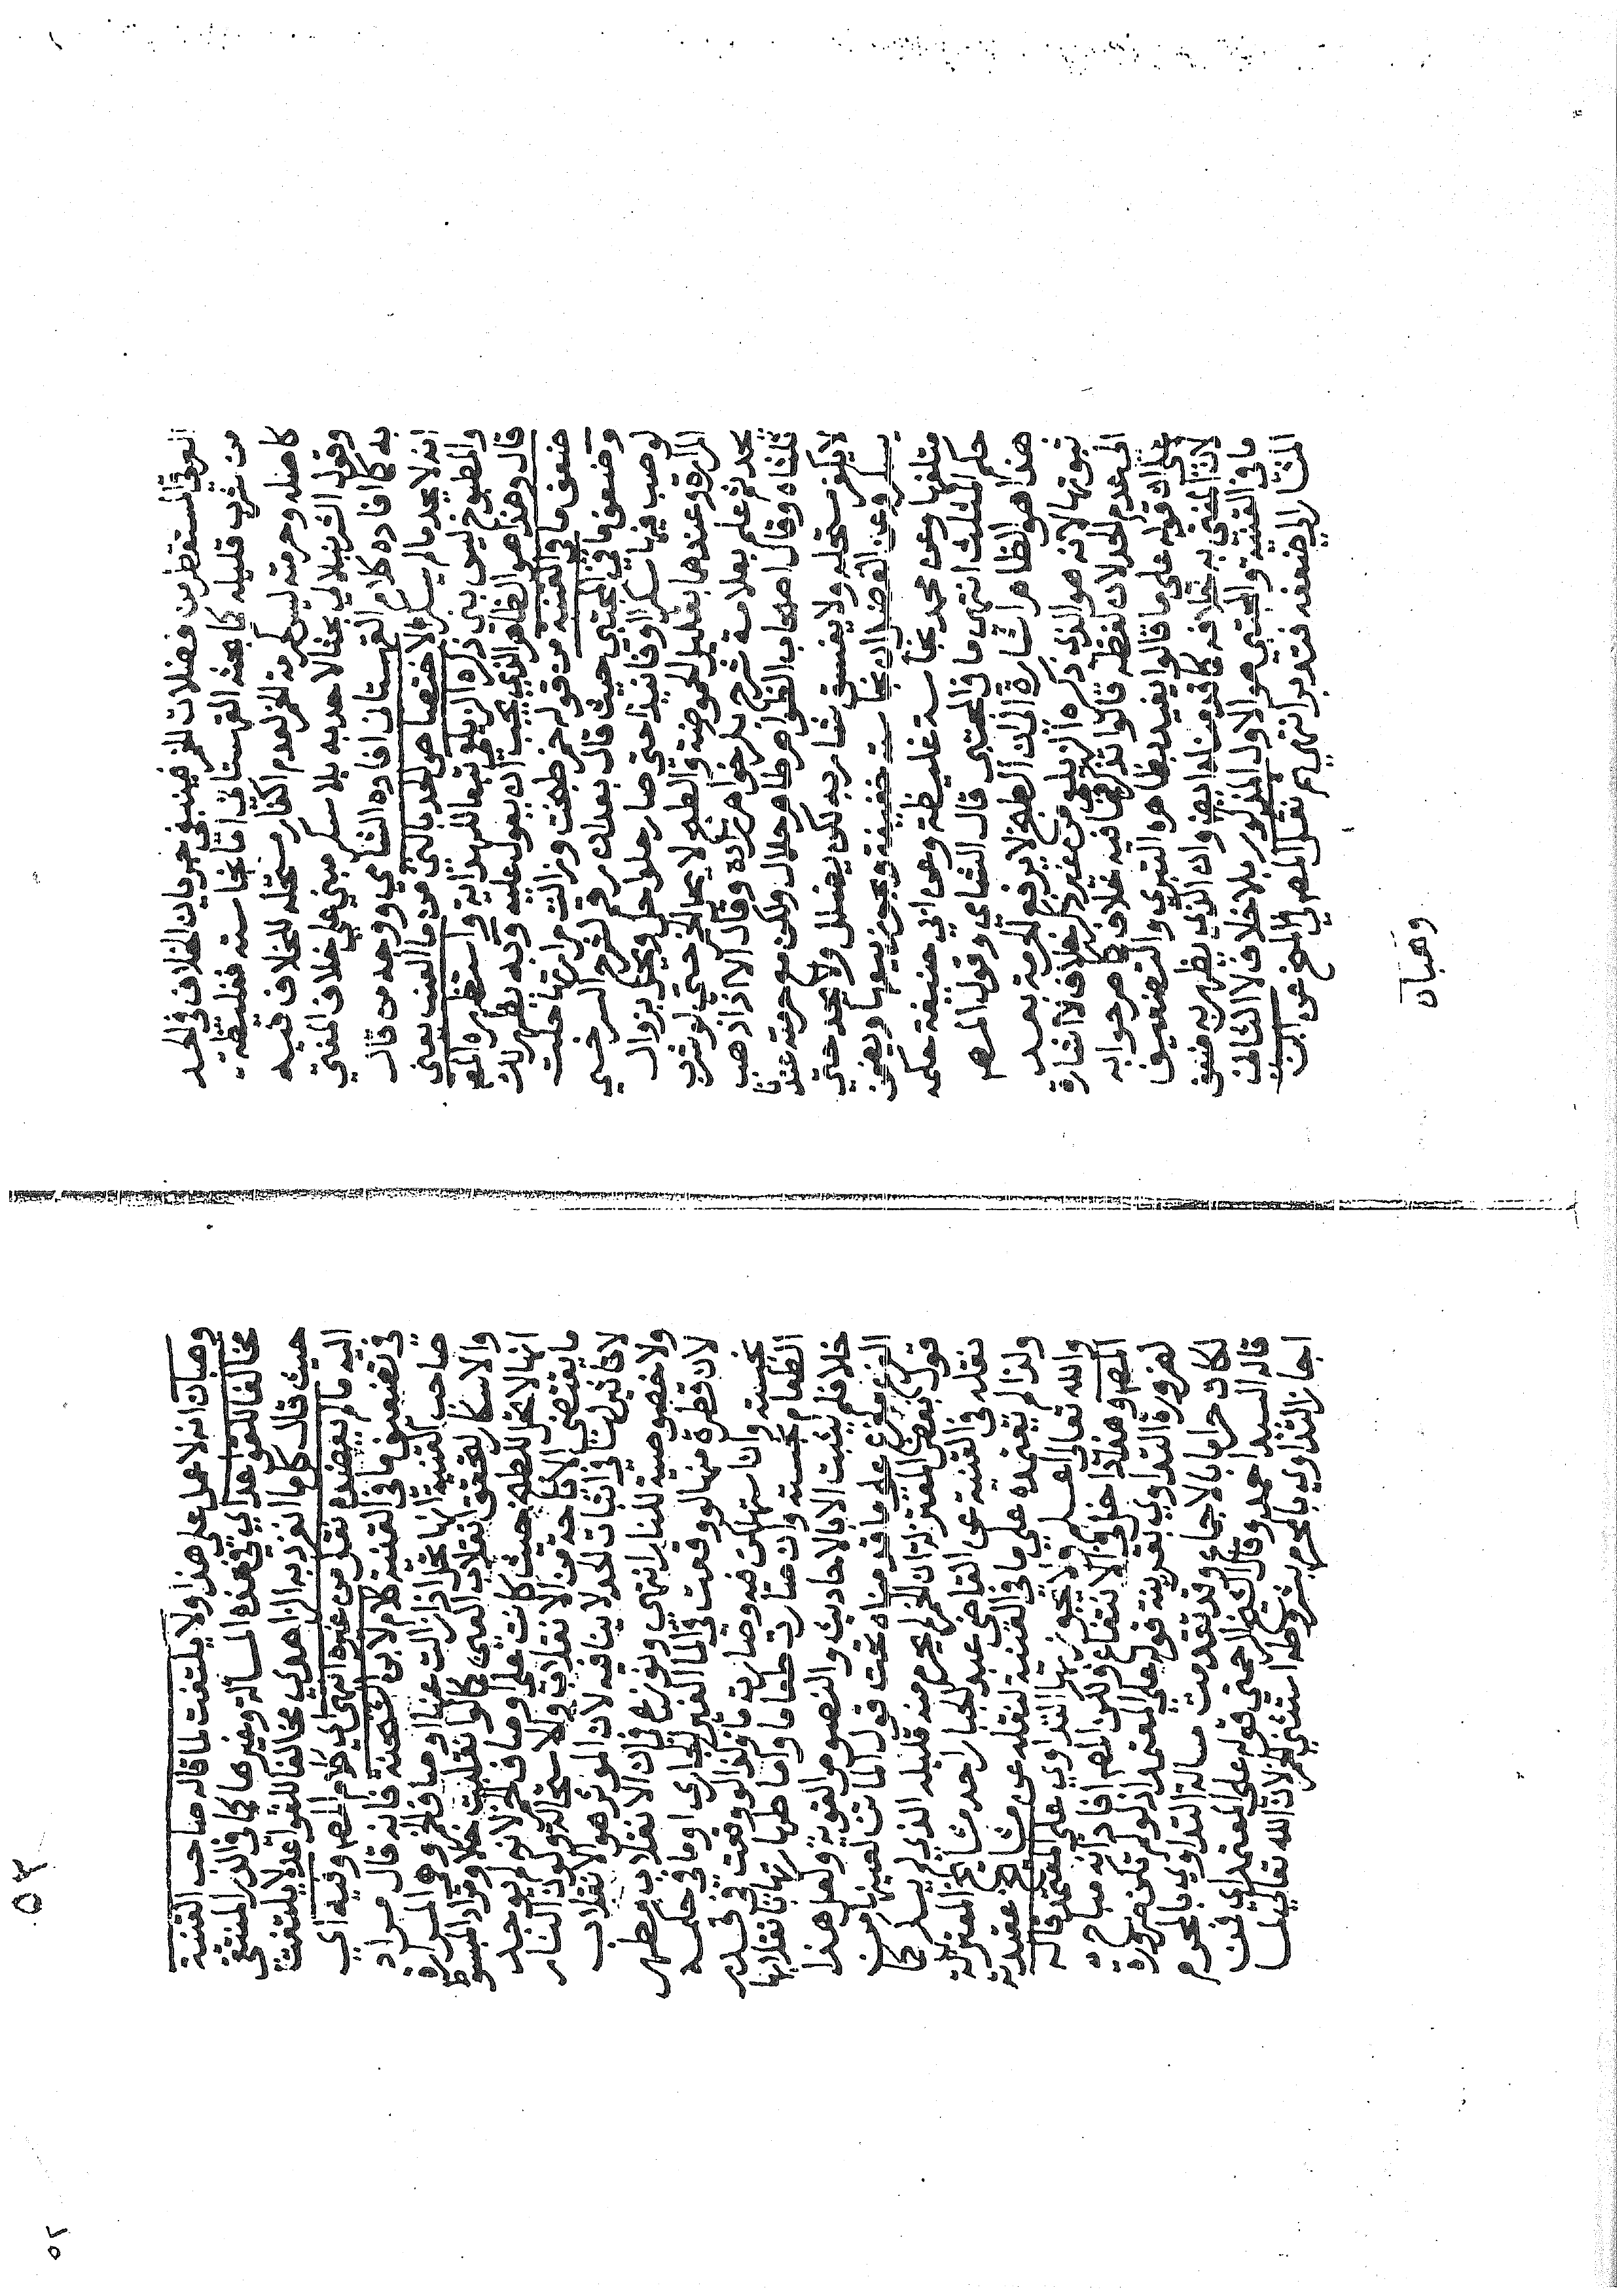 العرقي المستقطر من فضلات الخمر فينبغي جريان الخلاف في الحد
من شرب قليله كما بحثه القهستاني اما نجاسته فغليظة
كاصله وحرمته ليس كحرمة الخمر لعدم اكفار مستحله للخلاف فيه
وقول الشرنبلالي بحثا لا حد به بلا سكر مبني على خلاف المفتي
به كما افاده كلام القهستاني افاده الشامي ووجه من قال
انه لا يحد ما لم يسكر لاختصاص الحد بالني من ما العنب يعني
والمطبوخ ليس بني ذكره الزيلعي تبعا للهداية واستظهره المص
قال وهذا هو الظاهر الذي يجب ان يعول عليه وبه يظهر لك
ضعف ما في القنية من قوله خمر طبخت وزالت مرارتها حلت
وضعف ما في المجتبى حيث قال بعد ان رقم لشرح السرخسي
لو صب فيها سكرا او فانيذا حتى صار حلوا حل ويحل بزوال
المرارة وعندهما بقليل الحموضة والطبخ لا يحل الخمر حتى لو شرب
يحد ثم علم بعلامة شرح بكر خواهر زاده وقال الا اذا ذهب
ثلثاه وقال اصحاب الظواهر طاهر حلال ولكن مع حرمته عندنا
لا يكفر مستحله ولا يفسق شاربه لكن يضلل ولا يحد حتى
يسكر وعن الفضلي ان نجاسته خفيفة ويجوز بيعها ويضمن
متلفها وعن محمد نجاسته غليظة وعن ابي حنيفة حكمه
حكم المثلث انتهى ما في المجتبى قال الشامي وقول المص
هذا هو الظاهر اشارة الى ان الطبخ لا يرفع الحرمة بعد
ثبوتها لانه هو الذي ذكره الزيلعي من غير ذكر خلاف لا اشارة
الى عدم الحد لان لفظة قالوا تذكر فيما فيه خلاف كما مر جوابه
على ان قوله على ما قالوا يفيد بظاهره التبري والتضعيف
لان المفتى به خلافه كما قدمناه ايضا وان الذي يظهر به ضعف
ما في القنية والمجتبى هو الاول المذكور بلا خلاف لا الثاني
المشار الى ضعفه فتدبر انتهى ثم نقل المص في المنح عن ابن
وهبان
وهبان انه لا عمل على هذا ولا يلتفت لما قاله صاحب القنية
مخالفا للقواعد اي في هذه المسالة وغيرها كما في الدر المنتقى
حيث قال كلما انفرد به الزاهدي مخالفا للقواعد لا يلتفت
اليه ما لم يعضده نقل من غيره انتهى كلام المص وفيه اي
في تضعيف ما في القنية كلام لابن الشحنة فانه قال مراد
صاحب القنية انها تحل اذا زالت عنها اوصاف الخمر وهي المرارة
والاسكار لتحقق انقلاب العين كما لو انقلبت خلا ومراد المبسوط
انها لا تحل بالطبخ حيث كانت على اوصاف الخمر لانه لم يوجد
ما يقتضي الاباحة من الانقلاب والاستحالة وكون النار
لا تاثير لها في اثبات الحد لا ينافيه لان الموثر هو الانقلاب
ولا خصوصية للنار انتهى ونوزع فان الانقلاب مطهر
لان قطرة منها لو وقعت في الما الغير الجاري او ما في حكمه
نجسته وان استهلكت فيه وصارت ما ولذا لو وقعت في قدر
الطعام نجسته وان صارت طعاما واما طهارتها بانقلابها
خلا فلم يثبت الا بالاحاديث والنصوص القوية ولعل هذا
الفرع مفرع على ما قدمناه تحت قول الماتن لعينها من
قول بعض المعتزلة ان الخمر لا يحرم منه قليله الذي لم يسكر كما
نقله في القنية عن القاضي عبد الجبار احد مشايخ المعتزلة
ولذا لم يعتمده على ما في القنية لنقله عن مشايخ عقيدته
والله تعالى اعلم ولا يجوز بها التداوي على المعتمد قاله
المص وهذا داخل في الانتفاع ولكن المص افاد انه مباح
لضرورة التداوي بقرينة قوله على المعتمد اذ لو لم تكن ضرورة
لكان حراما بالاجماع وقد تقدمت مسالة التداوي بالمحرم
قاله السيد احمد وقال الشيخ الرحمتي قوله على المعتمد اي فمن
اجاز التداوي بالمحرم بشروطه استثنى الخمر لان الله تعالى لما
٥٢